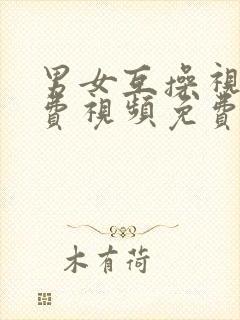 男女互操視
費視頻免費
木有荷